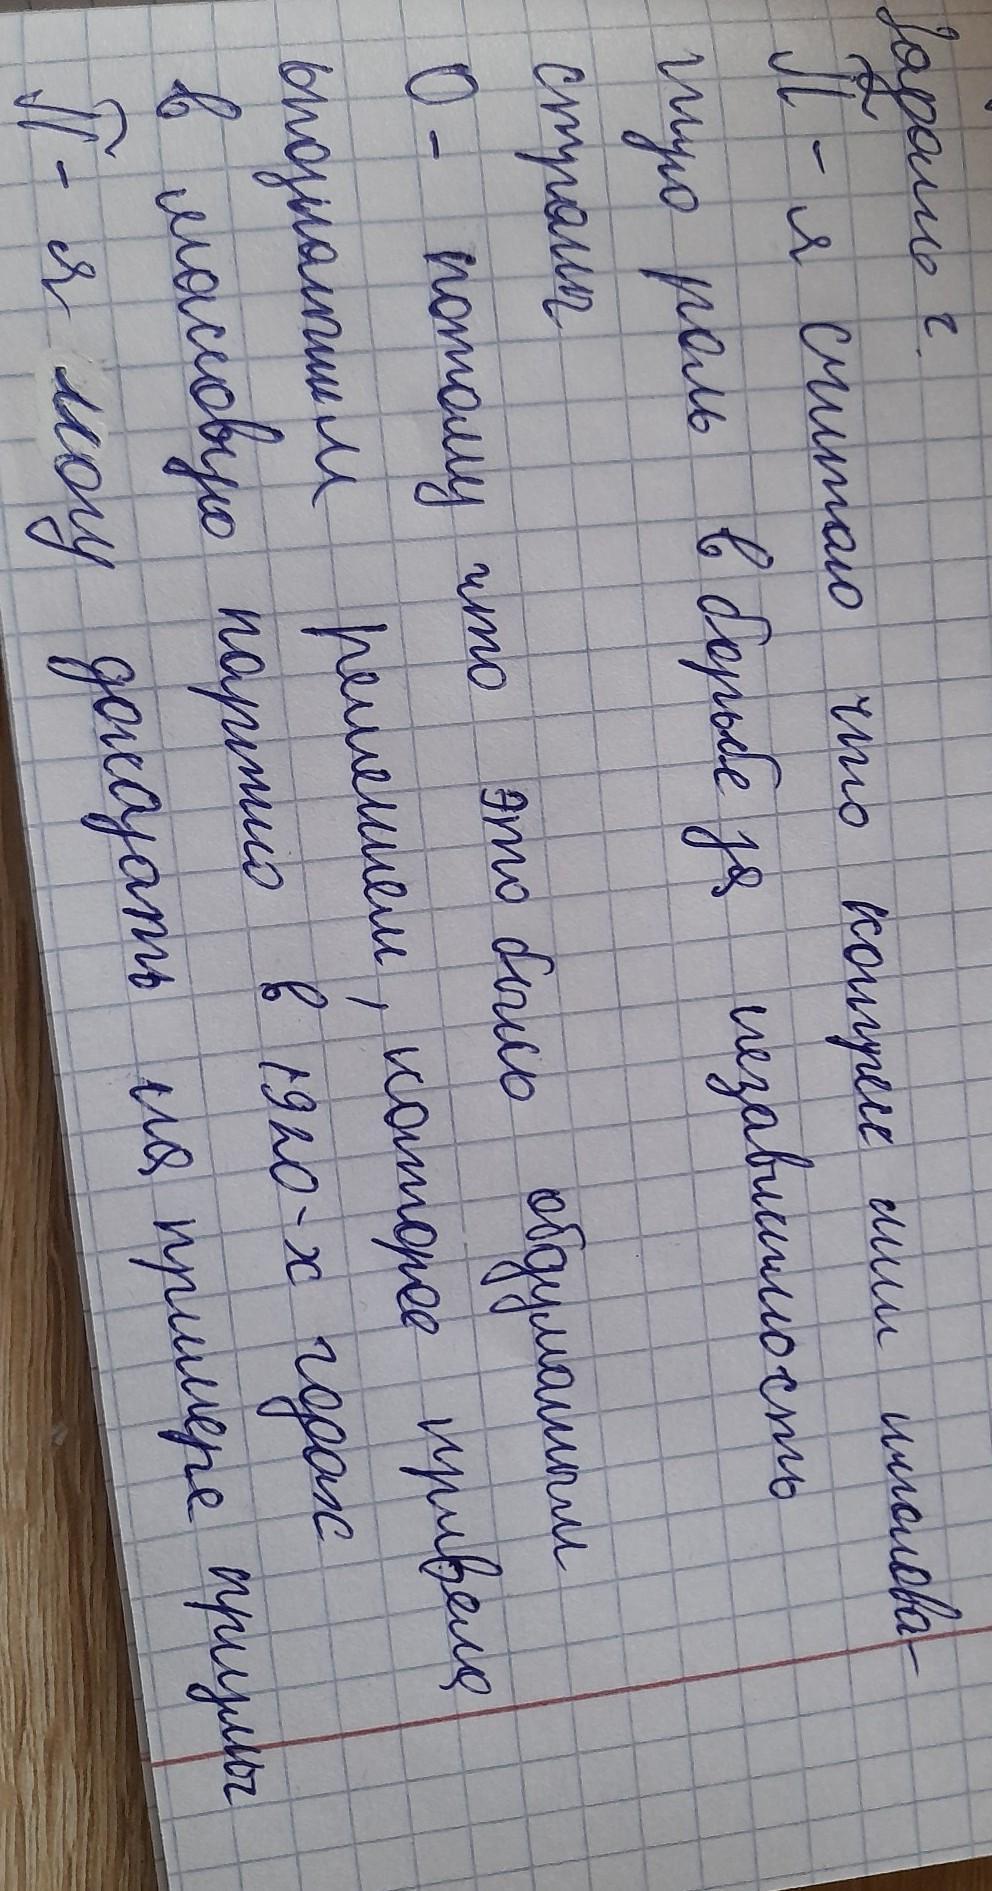 П - я считаю что конгресс имел имолова-
чную роль в борьбе за независимость
страны
О - потому что это было обдуманым
решением, которое привела
в массовую партию в 1920-х годах
П - я могу доказать на примере